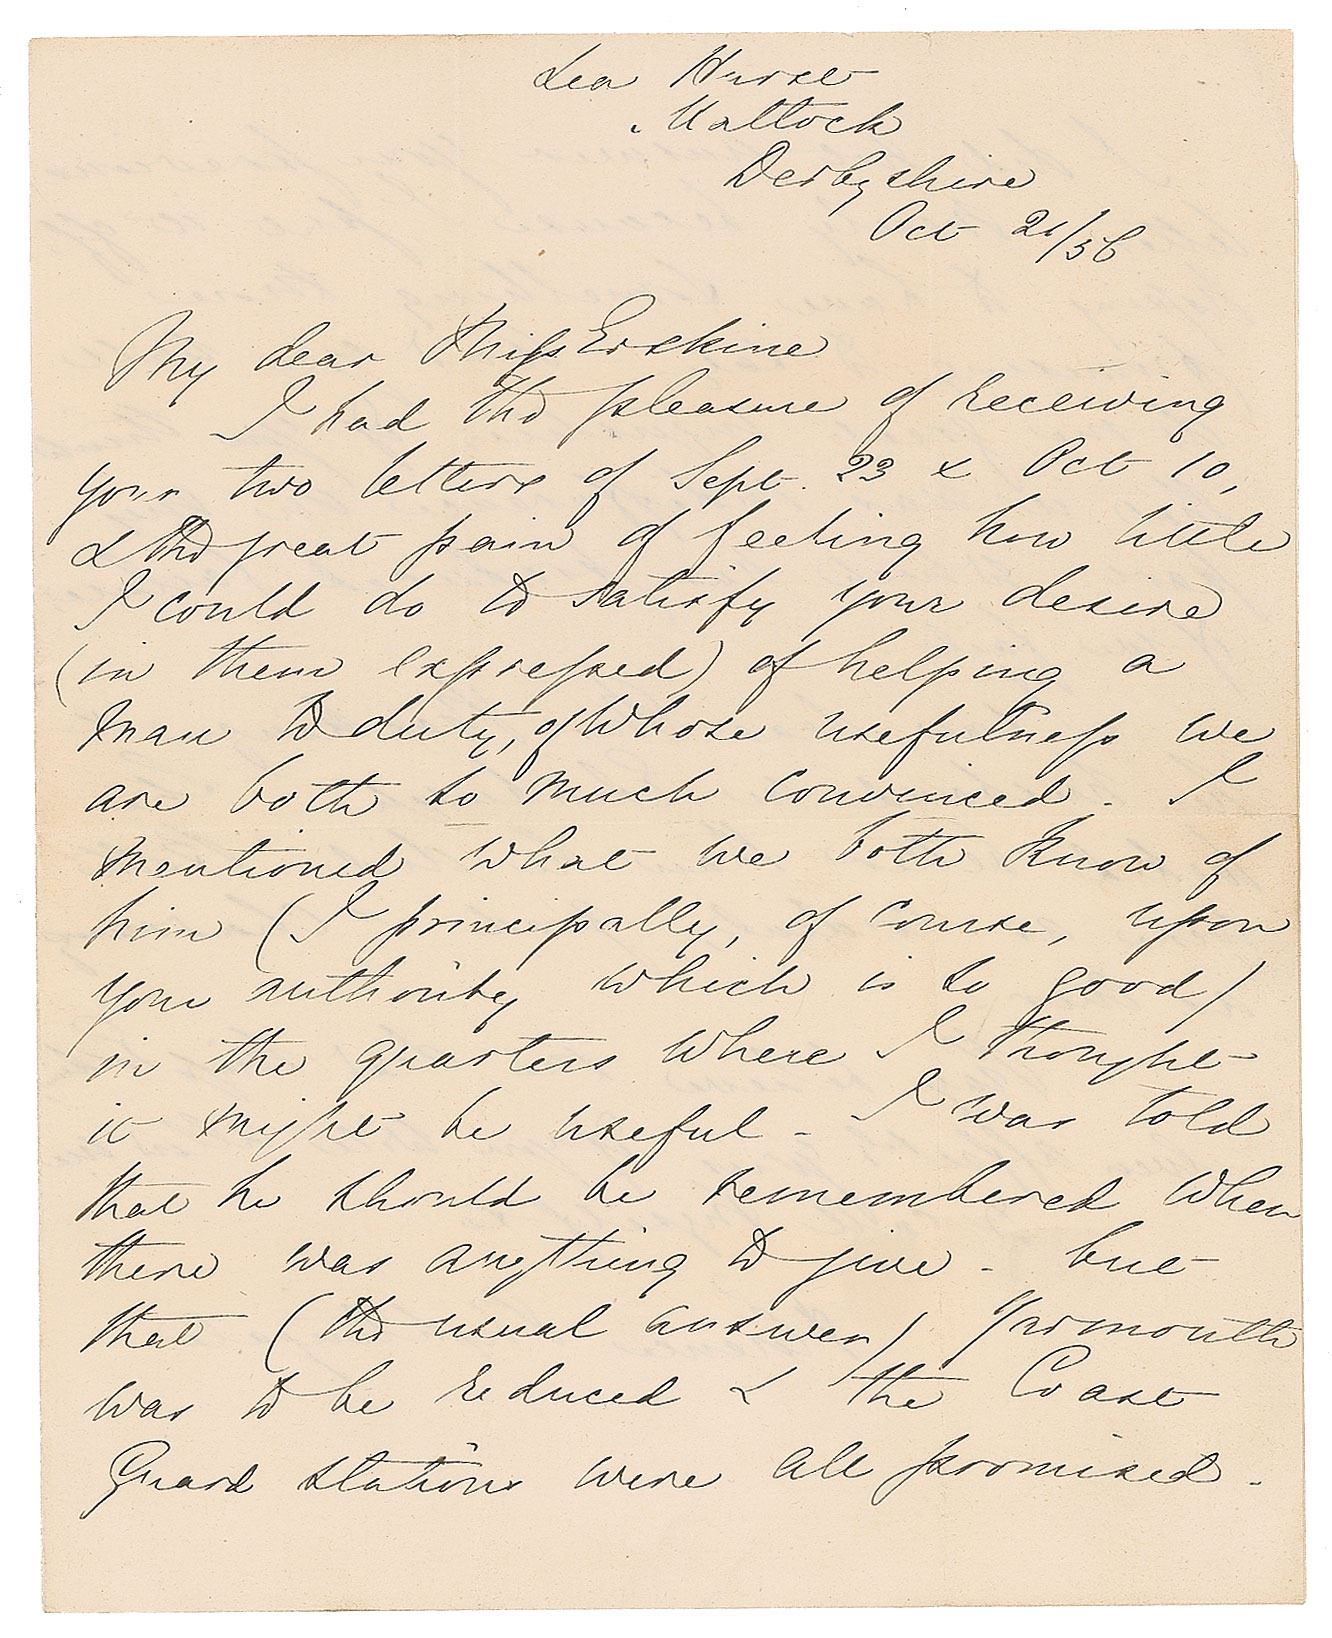 Lea Hurst
Matlock
Derbyshire
Oct 21/56
My dear Miss Erskine
I had the pleasure of receiving
your two letters of Sept. 23 & Oct 10,
& the great pain of feeling how little
I could do to satisfy your desire
(in them expressed) of helping a
man to duty, of whose usefulness we
are both so much convinced. I
mentioned what we both know of
him (I principally, of course, upon
your authority which is so good)
in the quarters where I thought
it might be useful - I was told
that he should be remembered when
there was anything to give - but
that (the usual answer) Yarmouth
was to be reduced & the Coast
Guard stations were all promised -